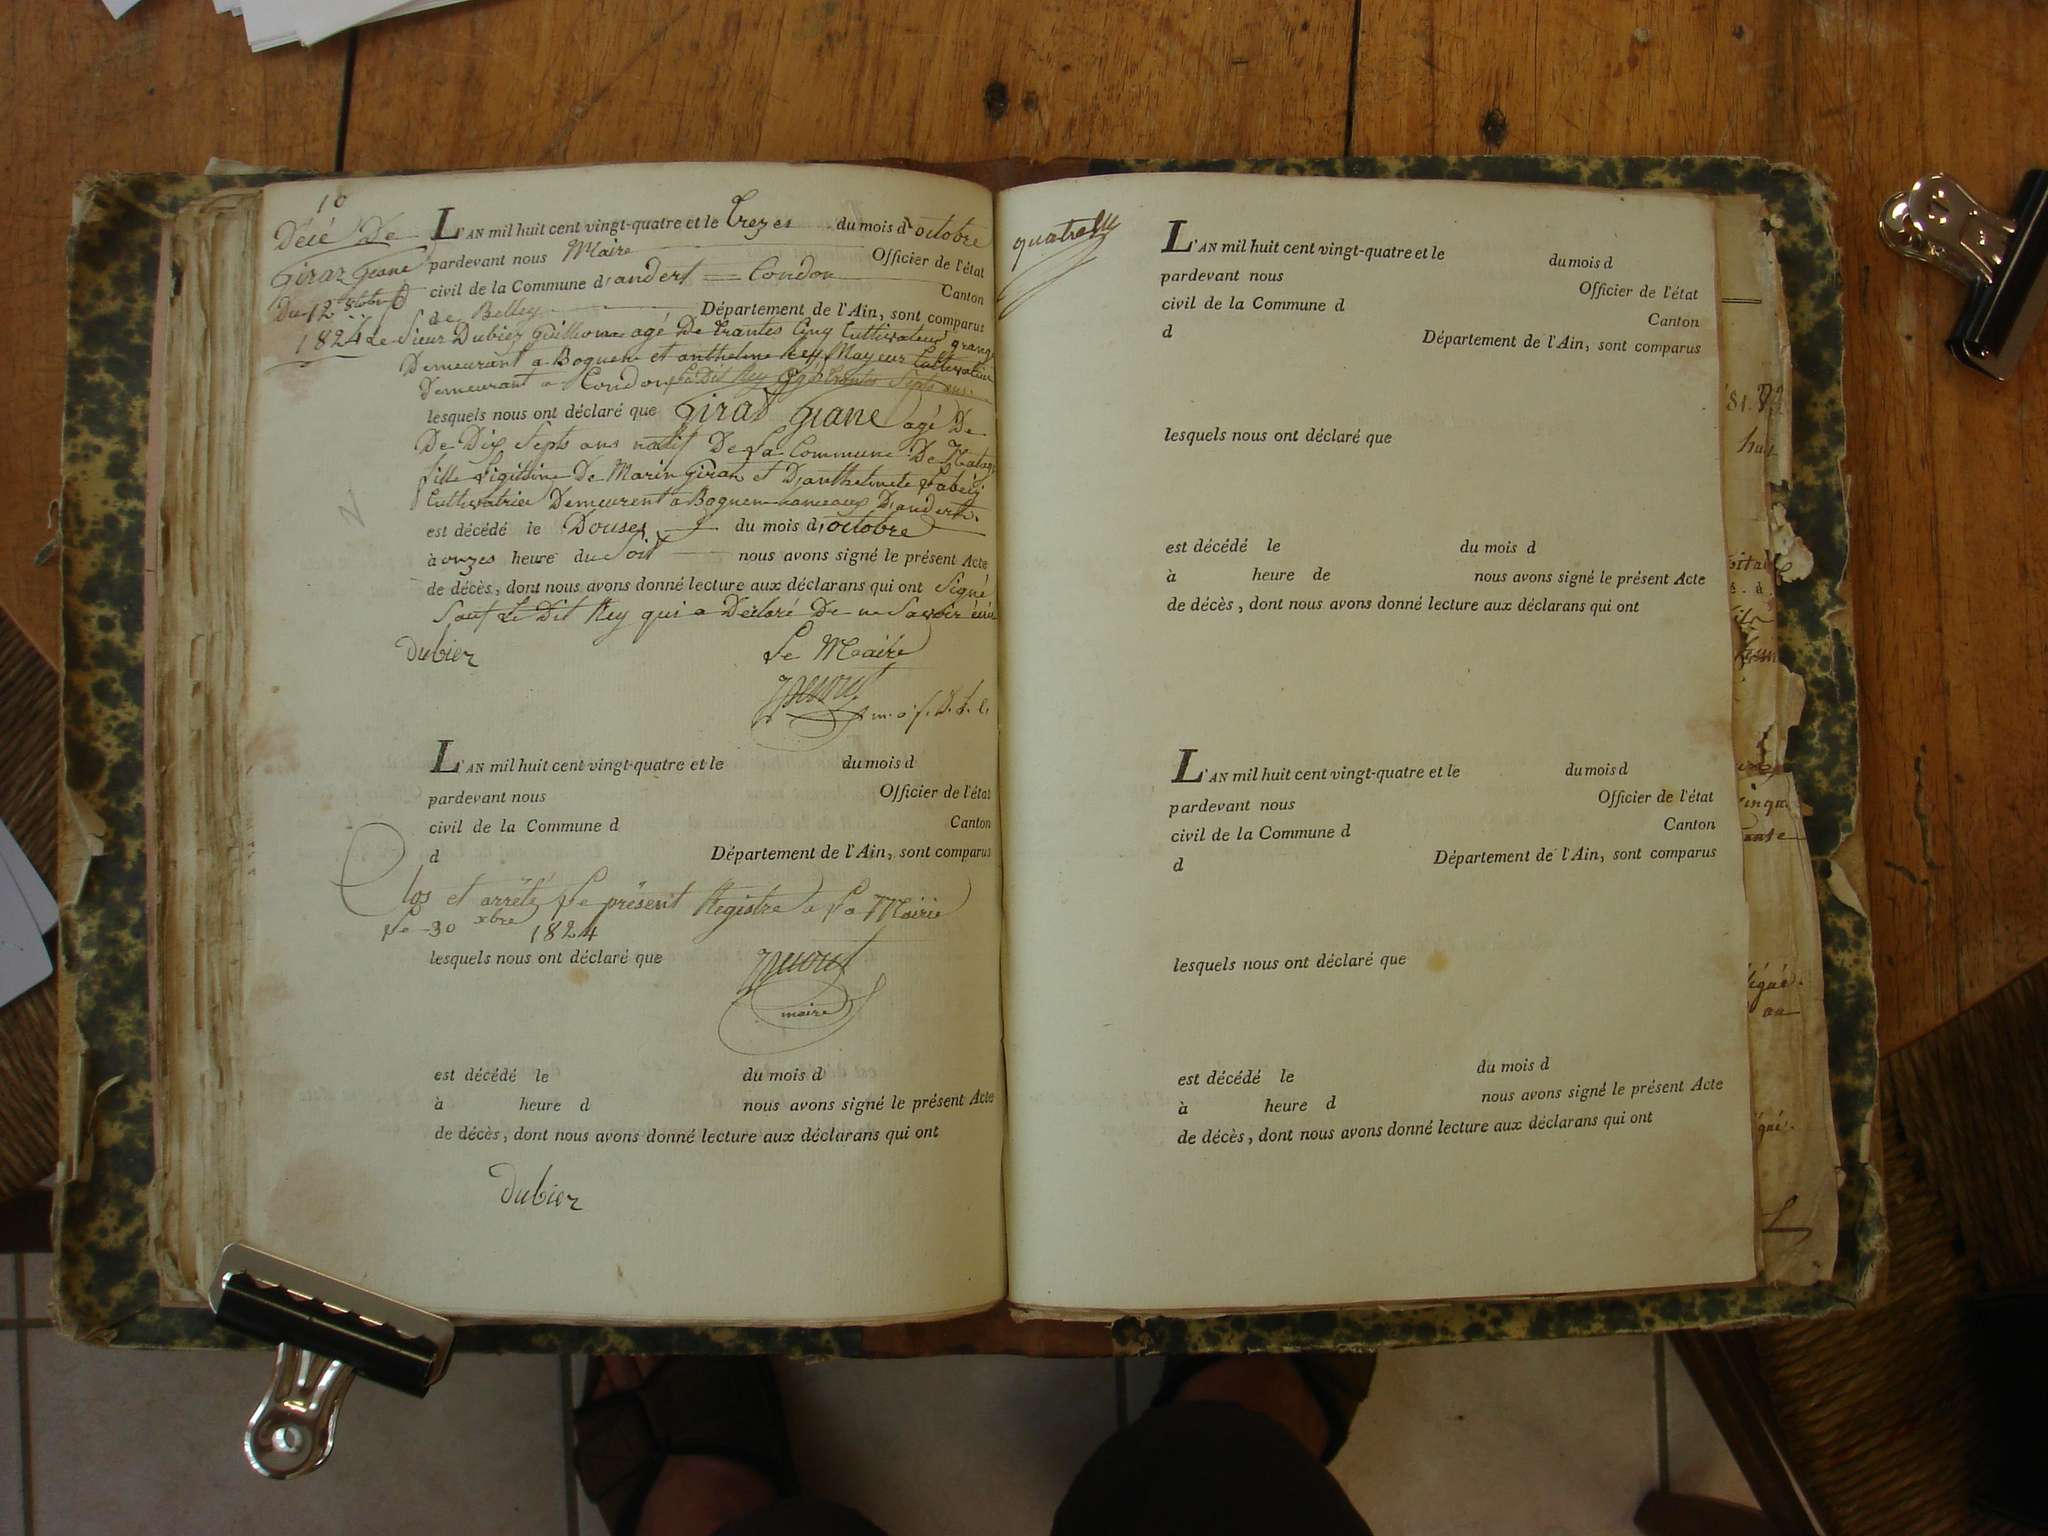 10
Décé De
Giraz Giane
Du 12 8bre
1824
L'AN mil huit cent vingt-quatre et le trezes du mois d'octobre
pardevant nous Maire Officier de l'état
civil de la Commune d'andert = Condon Canton
de Belley Département de l'Ain, sont comparus
Le Sieur Dubiez Guilliome agé De trantes Cinq Cultivateur
Demeurant a Bognen et anthelme Rey Mayeur Cultivateur
Demeurant a Condon Le Dit Rey agé trantes Septs ans
lesquels nous ont déclaré que Giraz Giane agé De
De Dix Septs ans natif De La Commune De
fille Ligitime De Marin Giraz et D'anthelmete
Cultivatrice Demeurent a Bognen hameaux D'andert
est décédé le Douses du mois d'octobre
à onzes heure du Soir nous avons signé le présent Acte
de décès, dont nous avons donné lecture aux déclarans qui ont Signé
Sauf Le Dit Rey qui a Déclaré De ne Savoir
dubiez Le Maire
L'AN mil huit cent vingt-quatre et le du mois d
pardevant nous Officier de l'état
civil de la Commune d Canton
d Département de l'Ain, sont comparus
Clos et arrêté Le présent Registre a La Mairie
Le 30 xbre 1824
lesquels nous ont déclaré que
maire
est décédé le du mois d
à heure d nous avons signé le présent Acte
de décès, dont nous avons donné lecture aux déclarans qui ont
dubiez
L'AN mil huit cent vingt-quatre et le du mois d
pardevant nous Officier de l'état
civil de la Commune d Canton
d Département de l'Ain, sont comparus
lesquels nous ont déclaré que
est décédé le du mois d
à heure de nous avons signé le présent Acte
de décès, dont nous avons donné lecture aux déclarans qui ont
L'AN mil huit cent vingt-quatre et le du mois d
pardevant nous Officier de l'état
civil de la Commune d Canton
d Département de l'Ain, sont comparus
lesquels nous ont déclaré que
est décédé le du mois d
à heure d nous avons signé le présent Acte
de décès, dont nous avons donné lecture aux déclarans qui ont